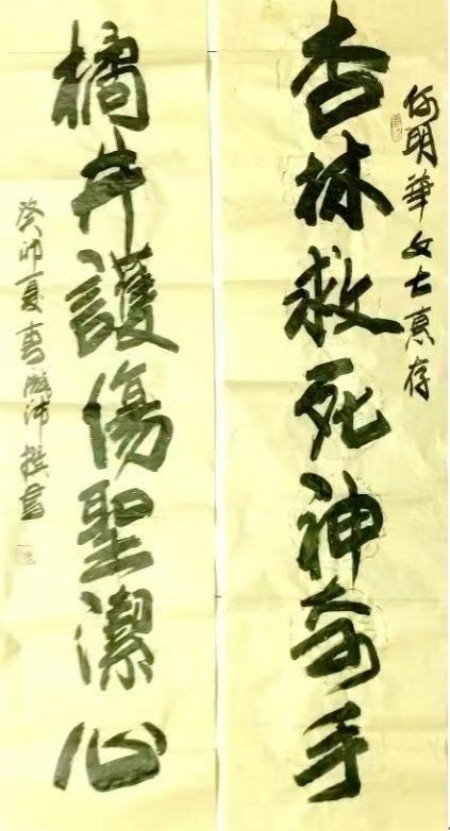 何明華女士惠存
杏林救死神奇手
橘井護傷聖潔心
癸卯夏
撰書